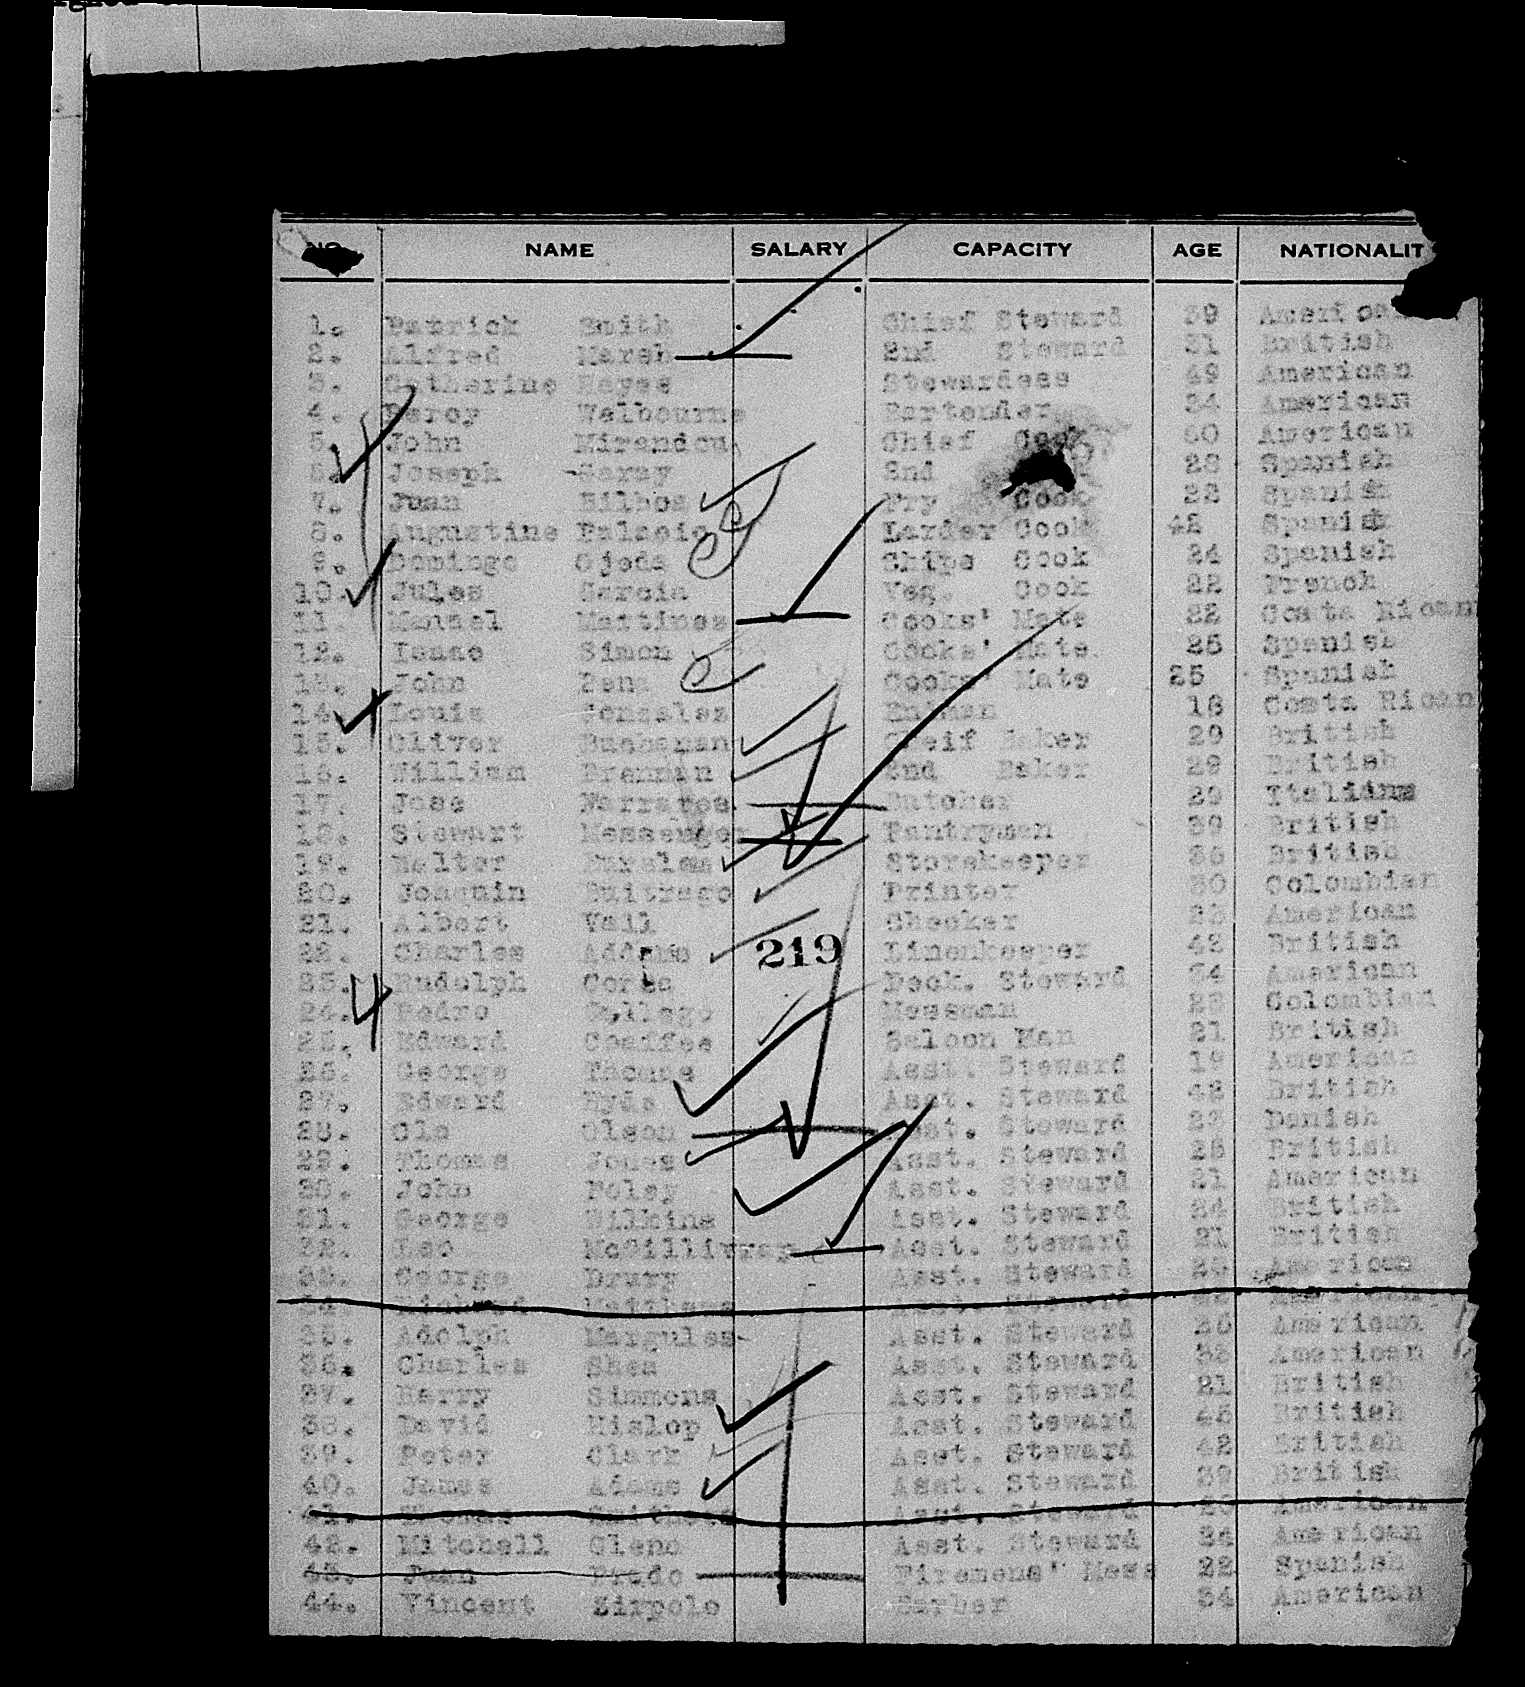 NAME SALARY CAPACITY AGE NATIONALIT
1. Patrick Smith Chief Steward 39 American
2. Alfred Marsh 2nd Steward 31 British
3. Catherine Hayes Stewardess 49 American
4. Percy Welbourne Bartender 34 American
5. John Chief Cook American
6. Joseph Garay 2nd Spanish
7. Juan Bilbos Fry Cook Spanish
8. Augustine Palacio Larder Cook 42 Spanish
9. Domingo Ojeda Chips Cook 24 Spanish
10. Jules Garcia Veg. Cook 22 French
11. Manuel Martines Cooks' Mate 22 Costa Rican
12. Isaac Simon Cooks' Mate 25 Spanish
13. John Pena Cooks' Mate 25 Spanish
14. Louis Gonzales 18 Costa Rican
15. Oliver Buchanan Cheif Baker 29 British
16. William Brennan 2nd Baker 29 British
17. Jose Butcher 29
18. Stewart Messenger Pantryman 39 British
19. Walter Storekeeper British
20. Joaquin Buitrago Printer 30 Colombian
21. Albert Vail Checker American
22. Charles Addams Linenkeeper 42 British
219
23. Rudolph Deck. Steward 34 American
24. Pedro Messman Colombian
25. Edward Saloon Man 21 British
26. George Thomas Asst. Steward 19 American
27. Edward Hyde Asst. Steward 42 British
28. Olo Olson Asst. Steward Danish
29. Thomas Jones Asst. Steward British
30. John Foley Asst. Steward 21 American
31. George Wilkins Asst. Steward 24 British
32. Leo McGillivray Asst. Steward 21 British
33. George Drury Asst. Steward American
34. Richard Matthews Asst. Steward American
35. Adolph Margules Asst. Steward American
36. Charles Shea Asst. Steward American
37. Harry Simmons Asst. Steward 21 British
38. David Hislop Asst. Steward 45 British
39. Peter Clark Asst. Steward 42 British
40. James Adams Asst. Steward 39 British
41. Thomas Asst. Steward American
42. Mitchell Gleno Asst. Steward American
43. Juan Prado Firemens' Mess 22 Spanish
44. Vincent Zirpolo Barber 34 American